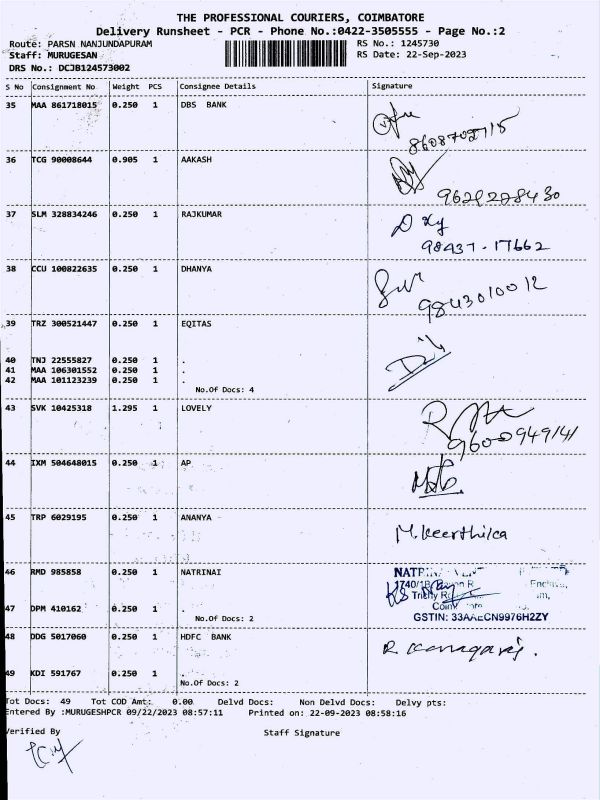 THE PROFESSIONAL COURIERS, COIMBATORE
Delivery Runsheet - PCR - Phone No.:0422-3505555 - Page No.:2
Route: PARSN NANJUNDAPURAM RS No.: 1245730
Staff: MURUGESAN RS Date: 22-Sep-2023
DRS No.: DCJB124573002
S No Consignment No Weight PCS Consignee Details Signature
35 MAA 861718015 0.250 1 DBS BANK
8608702715
36 TCG 90008644 0.905 1 AAKASH
9629228430
37 SLM 328834246 0.250 1 RAJKUMAR
98437-17662
38 CCU 100822635 0.250 1 DHANYA
9843010012
39 TRZ 300521447 0.250 1 EQITAS
40 TNJ 22555827 0.250 1 .
41 MAA 106301552 0.250 1 .
42 MAA 101123239 0.250 1 .
No.Of Docs: 4
43 SVK 10425318 1.295 1 LOVELY
9600949141
44 IXM 504648015 0.250 1 AP
45 TRP 6029195 0.250 1 ANANYA
M. Keerthika
46 RMD 985858 0.250 1 NATRINAI
47 DPM 410162 0.250 1 .
No.Of Docs: 2
GSTIN: 33AAECN9976H2ZY
48 DDG 5017060 0.250 1 HDFC BANK
R Kanagaraj.
49 KDI 591767 0.250 1 .
No.Of Docs: 2
Tot Docs: 49 Tot COD Amt: 0.00 Delvd Docs: Non Delvd Docs: Delvy pts:
Entered By :MURUGESHPCR 09/22/2023 08:57:11 Printed on: 22-09-2023 08:58:16
Verified By Staff Signature